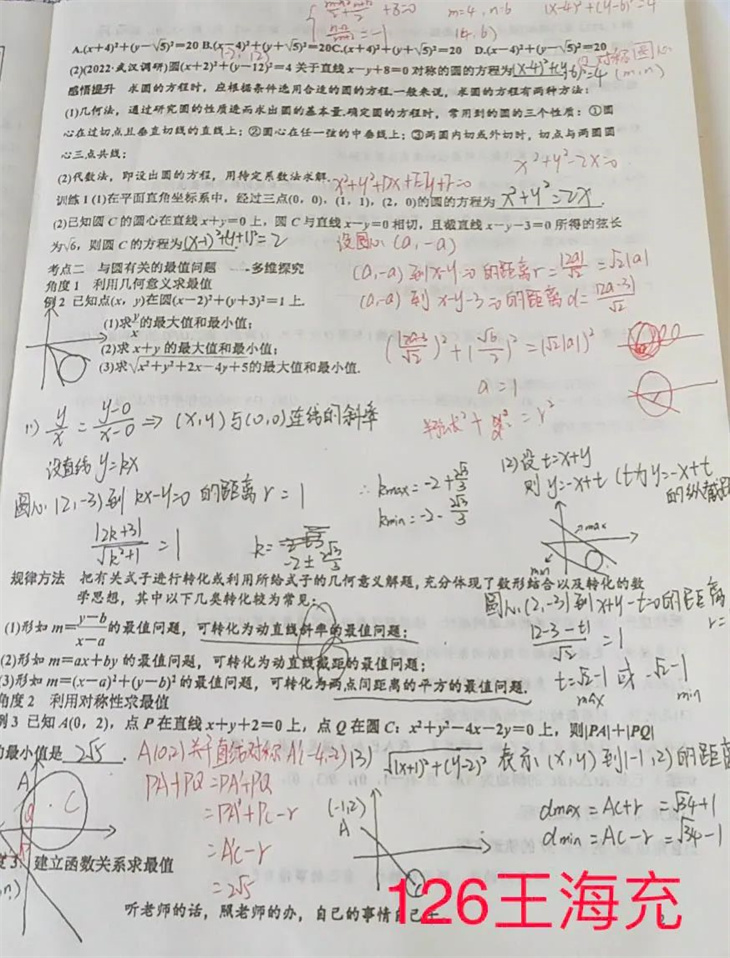 m=4, n=6 (x-4)²+(y-6)²=4
(4, 6)
A.(x+4)²+(y-√5)²=20 B.(x-4)²+(y+√5)²=20C.(x+4)²+(y+√5)²=20 D.(x-4)²+(y-√5)²=20
(-2, 12)
(2)(2022·武汉调研)圆(x+2)²+(y-12)²=4 关于直线 x-y+8=0 对称的圆的方程为(x-4)²+(y-6)²=4 (m,n)
感悟提升 求圆的方程时，应根据条件选用合适的圆的方程.一般来说，求圆的方程有两种方法：
(1)几何法，通过研究圆的性质进而求出圆的基本量.确定圆的方程时，常用到的圆的三个性质：①圆
心在过切点且垂直切线的直线上；②圆心在任一弦的中垂线上；③两圆内切或外切时，切点与两圆圆
心三点共线；
x²+y²-2x=0
(2)代数法，即设出圆的方程，用待定系数法求解. x²+y²+Dx+Ey+F=0
训练 1 (1)在平面直角坐标系中，经过三点(0，0)，(1，1)，(2，0)的圆的方程为 x²+y²=2x.
(2)已知圆 C 的圆心在直线 x+y=0 上，圆 C 与直线 x-y=0 相切，且截直线 x-y-3=0 所得的弦长
为√6，则圆 C 的方程为(x-1)²+(y+1)²=2 设圆心 (a, -a)
考点二 与圆有关的最值问题 多维探究
(a,-a) 到 x-y=0 的距离 r=|2a|/√2=√2|a|
角度 1 利用几何意义求最值
(a,-a) 到 x-y-3=0 的距离 d=|2a-3|/√2
例 2 已知点(x，y)在圆(x-2)²+(y+3)²=1 上.
(1)求y/x的最大值和最小值；
(2)求 x+y 的最大值和最小值；
(|2a-3|/√2)²+(√6/2)²=(√2|a|)²
(3)求√x²+y²+2x-4y+5的最大值和最小值.
a=1
(1) y/x = y-0/x-0 ⇒ (x,y) 与(0,0)连线的斜率
半弦长²+ =r²
设直线 y=kx
(2)设 t=x+y
圆心(2,-3)到 kx-y=0 的距离 r=1
∴ kmax=-2+2√3/3
则 y=-x+t (t为y=-x+t
的纵截距
kmin=-2-2√3/3
|2k+3|/√k²+1=1
k=-2±2√3/3
max
min
规律方法 把有关式子进行转化或利用所给式子的几何意义解题，充分体现了数形结合以及转化的数
学思想，其中以下几类转化较为常见：
圆心(2,-3)到x+y-t=0的距离
r=
(1)形如 m=y-b/x-a的最值问题，可转化为动直线斜率的最值问题；
|2-3-t|/√2=1
(2)形如 m=ax+by 的最值问题，可转化为动直线截距的最值问题；
t=√2-1 或 -√2-1
max min
(3)形如 m=(x-a)²+(y-b)² 的最值问题，可转化为两点间距离的平方的最值问题.
角度 2 利用对称性求最值
例 3 已知 A(0，2)，点 P 在直线 x+y+2=0 上，点 Q 在圆 C：x²+y²-4x-2y=0 上，则|PA|+|PQ|
的最小值是 2√5. A(0,2) 关于直线对称 A'(-4,-2)
(3) √(x+1)²+(y-2)² 表示 (x,y) 到(-1,2)的距离
PA+PQ=PA'+PQ
=PA'+PC-r
=A'C-r
=2√5
A
C
(-1,2)
A
dmax=AC+r=√34+1
dmin=AC-r=√34-1
建立函数关系求最值
听老师的话，照老师的办，自己的事情自己
126王海充